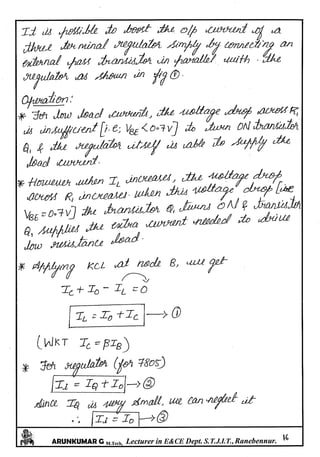 It is possible to boost the o/p current of a
three terminal regulator simply by connecting an
external pass transistor in parallel with the
regulator as shown in fig ①.
Operation:
* For low load currents, the voltage drop across R₁
is insufficient [i.e; VBE < 0.7V] to turn ON transistor
Q₁ & the regulator itself is able to supply the
load current.
* However when IL increases, the voltage drop
across R₁ increases. When this voltage drop [is
VBE = 0.7V] the transistor Q₁ turns ON & transistor
Q₁ supplies the extra current needed to drive
low resistance load.
* Applying KCL at node B, we get
Ic + Io - IL = 0
IL = Io + Ic → ①
(WKT Ic = βIB)
* For regulator (for 7805)
II = IQ + Io → ②
Since IQ is very small, we can neglect it
∴ II = Io → ③
ARUNKUMAR G M.Tech, Lecturer in E&CE Dept. S.T.J.I.T., Ranebennur. 16